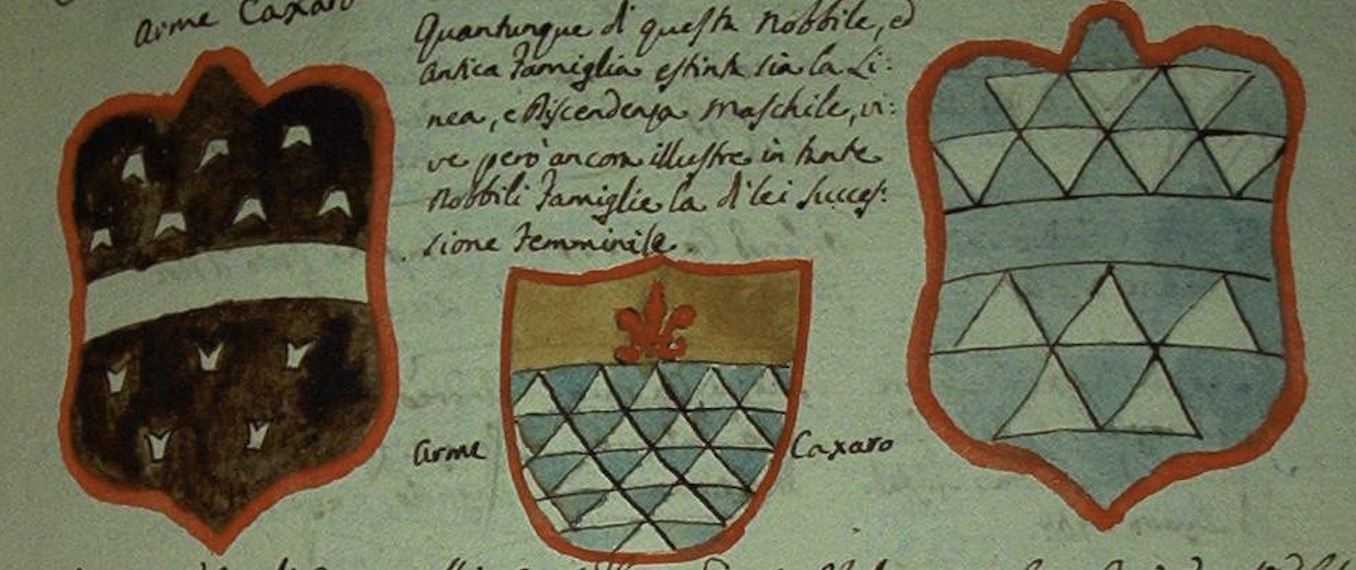 Arme Caxaro
Quantunque di questa Nobbile, ed
Antica Famiglia estinta sia la Li:
nea, e Discendenza Maschile, vi:
ve però ancora illustre in tante
Nobbili Famiglie la di lei succes:
sione Femminile
Arme Caxaro